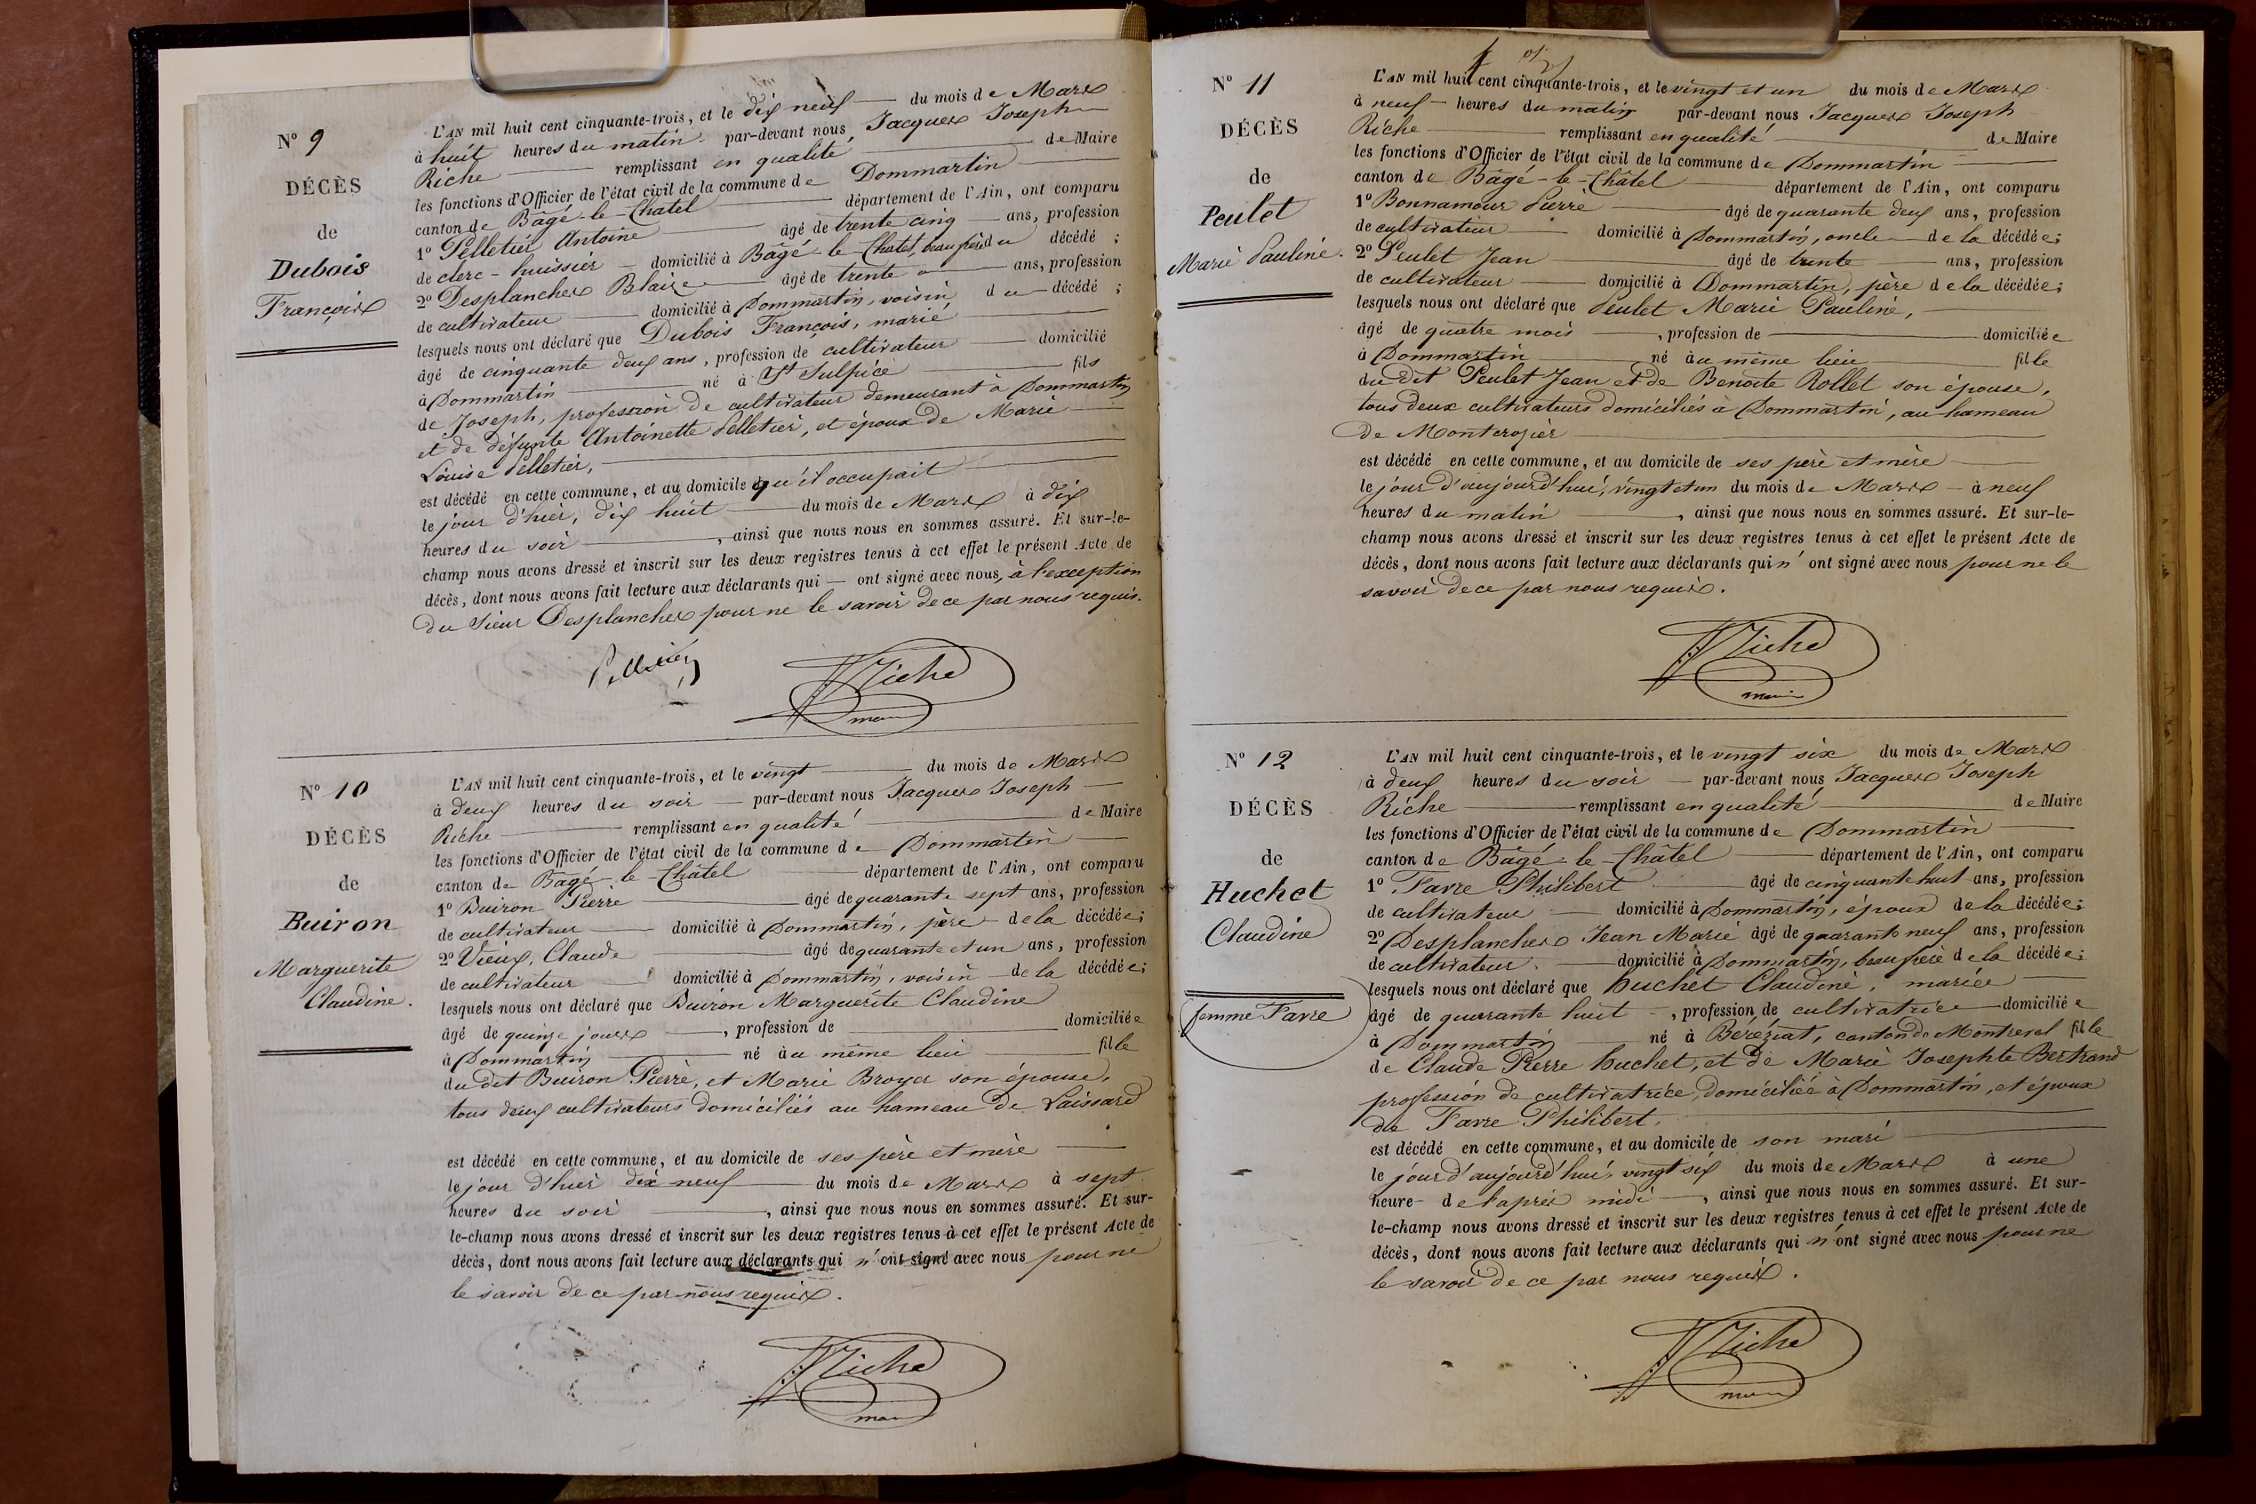 N° 9
DÉCÈS
de
Dubois
François
L'AN mil huit cent cinquante-trois, et le dix neuf du mois de Mars
à huit heures du matin par-devant nous Jacques Joseph
Riche remplissant en qualité de Maire
les fonctions d'Officier de l'état civil de la commune de Dommartin
canton de Bâgé-le-Châtel département de l'Ain, ont comparu
1° Pelletier Antoine âgé de trente cinq ans, profession
de clerc-huissier domicilié à Bâgé-le-Châtel, beau frère du décédé;
2° Desplanches Blaize âgé de trente ans, profession
de cultivateur domicilié à Dommartin, voisin du décédé;
lesquels nous ont déclaré que Dubois François, marié
âgé de cinquante deux ans, profession de cultivateur domicilié
à Dommartin né à St Sulpice fils
de Joseph, profession de cultivateur demeurant à Dommartin
et de défunte Antoinette Pelletier, et époux de Marie
Louise Pelletier,
est décédé en cette commune, et au domicile qu'il occupait
le jour d'hier, dix huit du mois de Mars à dix
heures du soir, ainsi que nous nous en sommes assuré. Et sur-le-
champ nous avons dressé et inscrit sur les deux registres tenus à cet effet le présent Acte de
décès, dont nous avons fait lecture aux déclarants qui — ont signé avec nous, à l'exception
du Sieur Desplanches pour ne le savoir de ce par nous requis.
Pelletier
Riche
maire
N° 10
DÉCÈS
de
Buiron
Marguerite
Claudine.
L'AN mil huit cent cinquante-trois, et le vingt du mois de Mars
à deux heures du soir par-devant nous Jacques Joseph
Riche remplissant en qualité de Maire
les fonctions d'Officier de l'état civil de la commune de Dommartin
canton de Bâgé-le-Châtel département de l'Ain, ont comparu
1° Buiron Pierre âgé de quarante sept ans, profession
de cultivateur domicilié à Dommartin, père de la décédée;
2° Vieux, Claude âgé de quarante et un ans, profession
de cultivateur domicilié à Dommartin, voisin de la décédée;
lesquels nous ont déclaré que Buiron Marguerite Claudine
âgé de quinze jours, profession de domiciliée
à Dommartin né au même lieu fille
du dit Buiron Pierre, et Marie Broyer son épouse,
tous deux cultivateurs domiciliés au hameau de Laissard
est décédé en cette commune, et au domicile de ses père et mère
le jour d'hier dix neuf du mois de Mars à sept
heures du soir, ainsi que nous nous en sommes assuré. Et sur-
le-champ nous avons dressé et inscrit sur les deux registres tenus à cet effet le présent Acte de
décès, dont nous avons fait lecture aux déclarants qui n'ont signé avec nous pour ne
le savoir de ce par nous requis.
Riche
maire
N° 11
DÉCÈS
de
Peulet
Marie Pauline.
L'AN mil huit cent cinquante-trois, et le vingt et un du mois de Mars
à neuf heures du matin par-devant nous Jacques Joseph
Riche remplissant en qualité de Maire
les fonctions d'Officier de l'état civil de la commune de Dommartin
canton de Bâgé-le-Châtel département de l'Ain, ont comparu
1° Bonnamour Pierre âgé de quarante deux ans, profession
de cultivateur domicilié à Dommartin, oncle de la décédée;
2° Peulet Jean âgé de trente ans, profession
de cultivateur domicilié à Dommartin, père de la décédée;
lesquels nous ont déclaré que Peulet Marie Pauline,
âgé de quatre mois, profession de domiciliée
à Dommartin né au même lieu fille
du dit Peulet Jean et de Benoite Rollet son épouse,
tous deux cultivateurs domiciliés à Dommartin, au hameau
de Montcrozier
est décédé en cette commune, et au domicile de ses père et mère
le jour d'aujourd'hui, vingt et un du mois de Mars à neuf
heures du matin, ainsi que nous nous en sommes assuré. Et sur-le-
champ nous avons dressé et inscrit sur les deux registres tenus à cet effet le présent Acte de
décès, dont nous avons fait lecture aux déclarants qui n'ont signé avec nous pour ne le
savoir de ce par nous requis.
Riche
maire
N° 12
DÉCÈS
de
Huchet
Claudine
femme Favre
L'AN mil huit cent cinquante-trois, et le vingt six du mois de Mars
à deux heures du soir par-devant nous Jacques Joseph
Riche remplissant en qualité de Maire
les fonctions d'Officier de l'état civil de la commune de Dommartin
canton de Bâgé-le-Châtel département de l'Ain, ont comparu
1° Favre Philibert âgé de cinquante huit ans, profession
de cultivateur domicilié à Dommartin, époux de la décédée;
2° Desplanches Jean Marie âgé de quarante neuf ans, profession
de cultivateur domicilié à Dommartin, beau frère de la décédée;
lesquels nous ont déclaré que huchet Claudine, mariée
âgé de quarante huit, profession de cultivatrice domiciliée
à Dommartin né à Béréziat, canton de Montrevel fille
de Claude Pierre huchet, et de Marie Josephte Bertrand
profession de cultivatrice, domiciliée à Dommartin, et époux
du Favre Philibert,
est décédé en cette commune, et au domicile de son mari
le jour d'aujourd'hui, vingt six du mois de Mars à une
heure de l'après midi, ainsi que nous nous en sommes assuré. Et sur-
le-champ nous avons dressé et inscrit sur les deux registres tenus à cet effet le présent Acte de
décès, dont nous avons fait lecture aux déclarants qui n'ont signé avec nous pour ne
le savoir de ce par nous requis.
Riche
maire